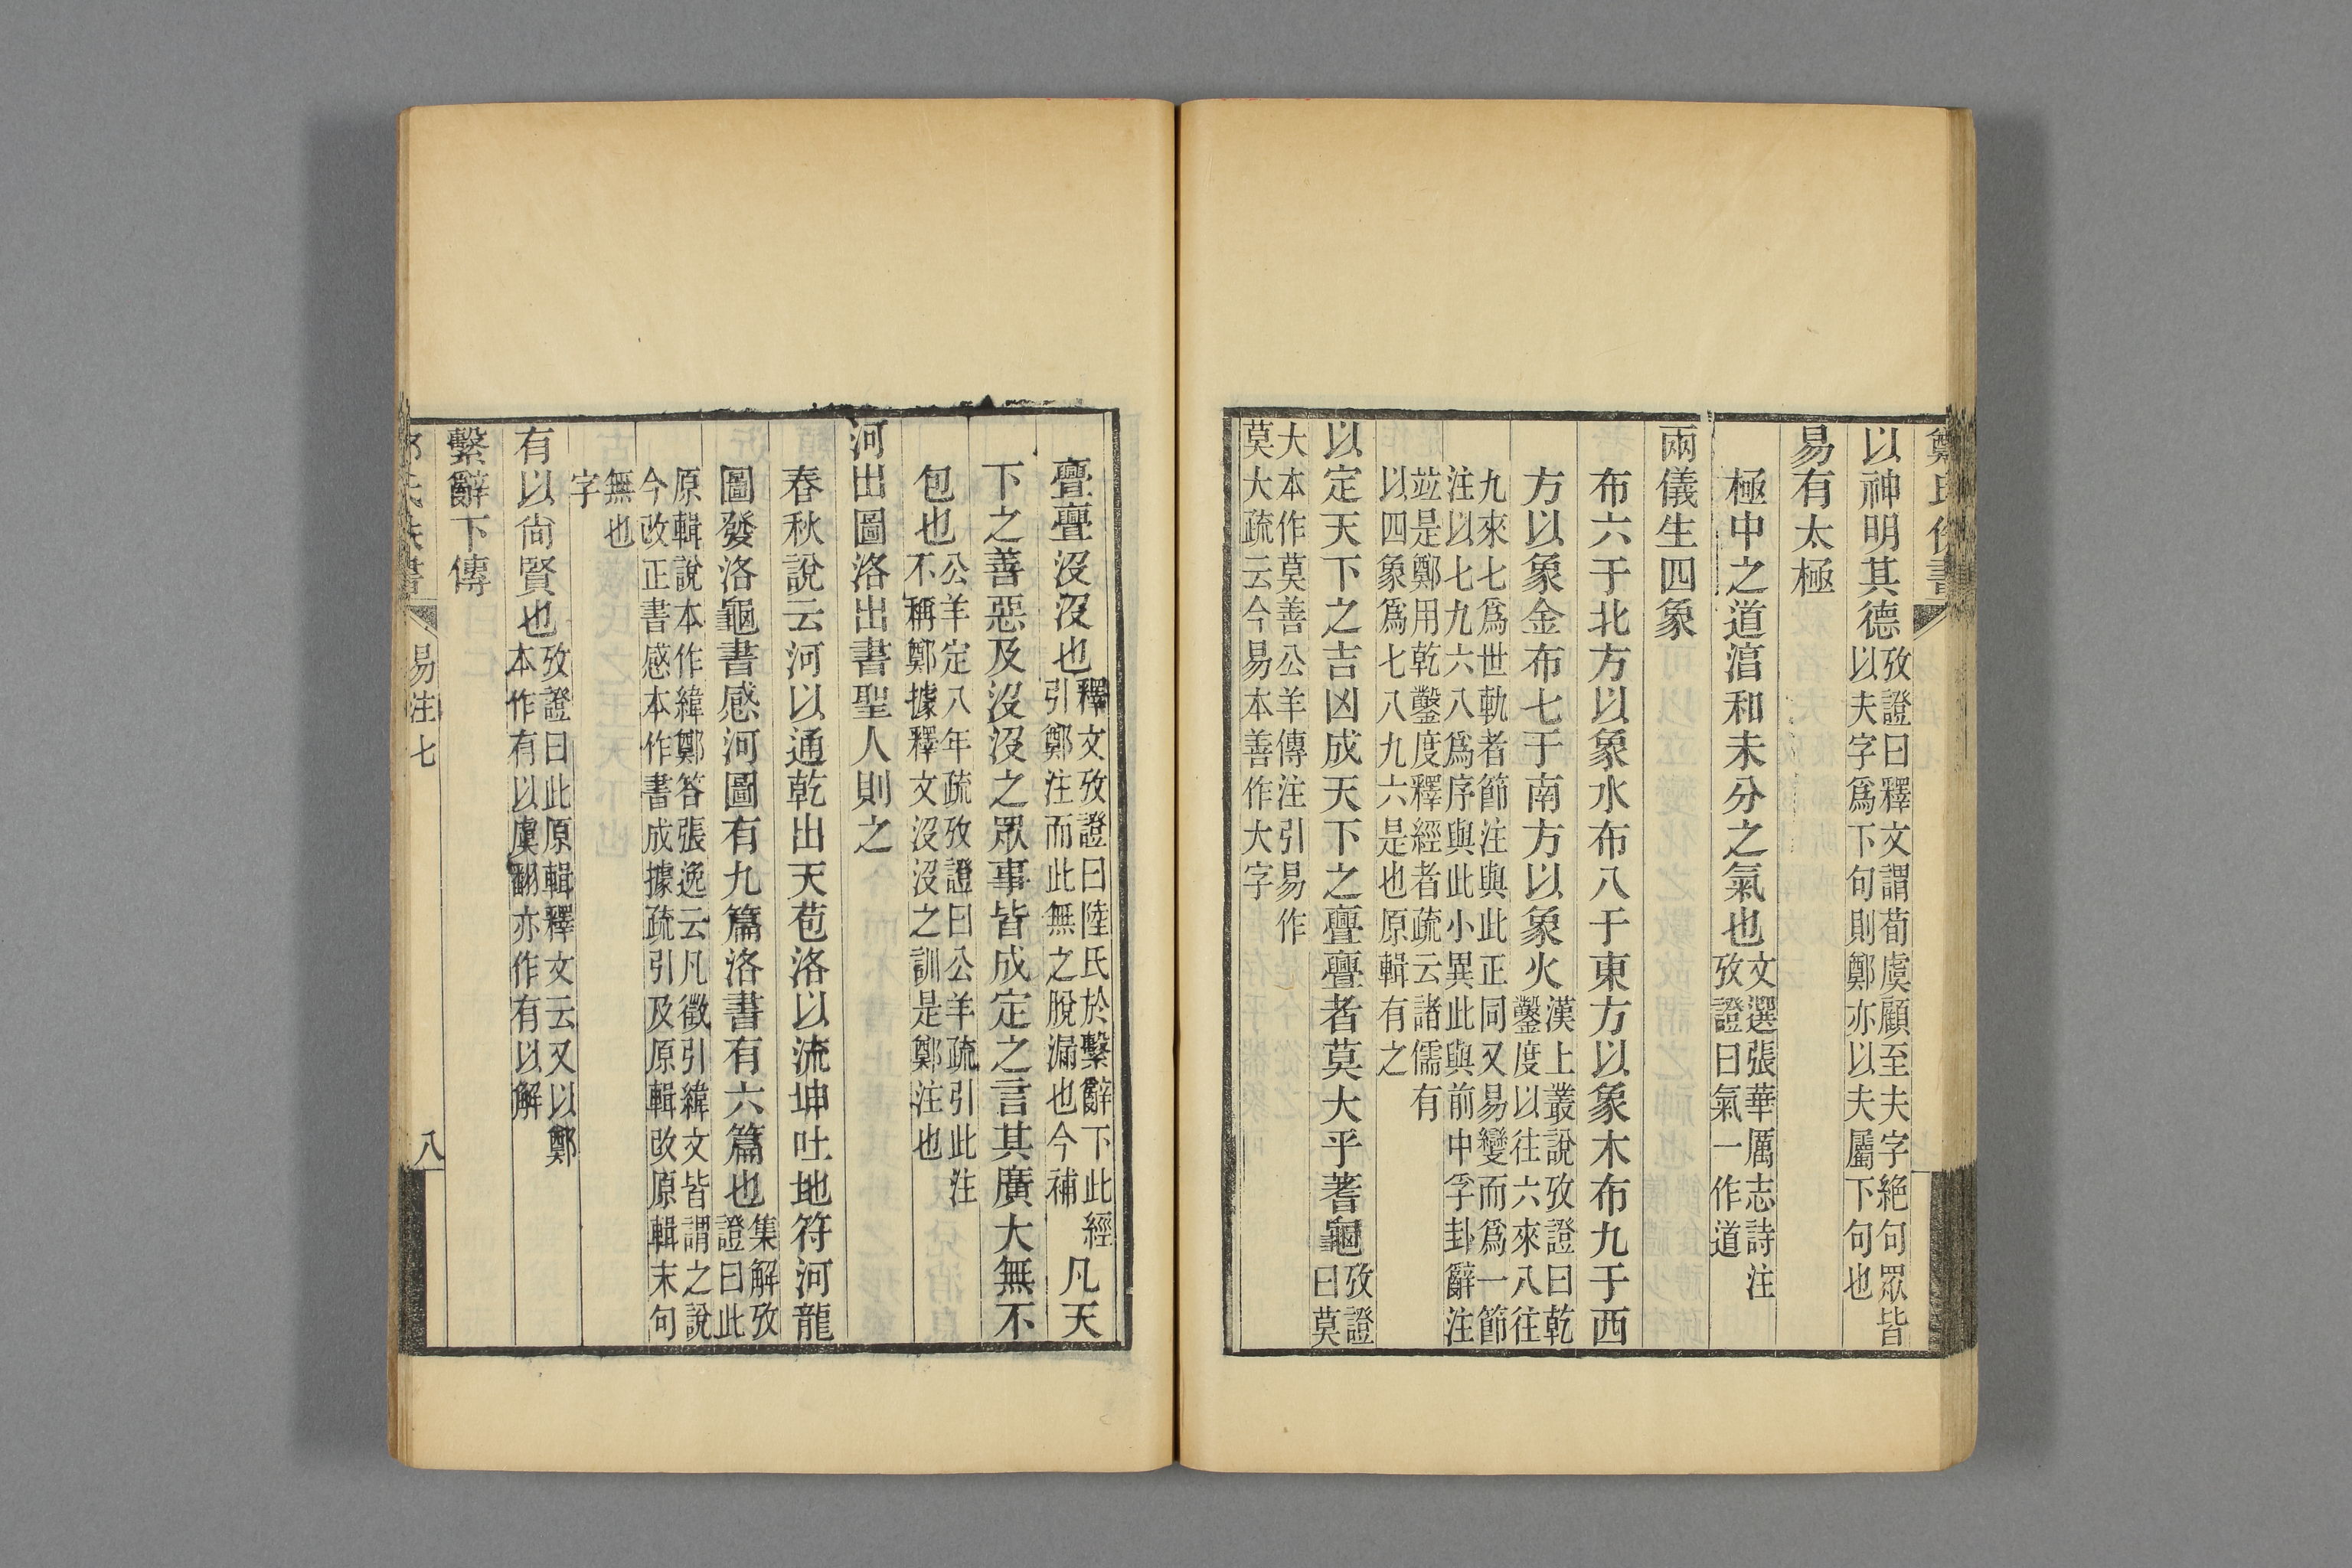 以神明其德攷證曰釋文謂荀虞顧至夫字絶句眾皆以夫字爲下句則鄭亦以夫屬下句也
易有太極
極中之道湻和未分之氣也文選張華厲志詩注攷證曰氣一作道
兩儀生四象
布六于北方以象水布八于東方以象木布九于西
方以象金布七于南方以象火漢上叢說攷證曰乾鑿度以往六來八往
九來七爲世軌者節注與此正同又易變而爲一節注以七九六八爲序與此小異此與前中孚卦辭注
竝是鄭用乾鑿度釋經者疏云諸儒有以四象爲七八九六是也原輯有之
以定天下之吉凶成天下之亹亹者莫大乎蓍龜攷證曰莫
大本作莫善公羊傳注引易作莫大疏云今易本善作大字
亹亹沒沒也釋文攷證曰陸氏於繫辭下此經引鄭注而此無之脫漏也今補凡天
下之善惡及沒沒之眾事皆成定之言其廣大無不
包也公羊定八年疏攷證曰公羊疏引此注不稱鄭據釋文沒沒之訓是鄭注也
河出圖洛出書聖人則之
春秋說云河以通乾出天苞洛以流坤吐地符河龍
圖發洛龜書感河圖有九篇洛書有六篇也集解攷證曰此
原輯說本作緯鄭答張逸云凡徵引緯文皆謂之說今改正書感本作書成據疏引及原輯改原輯末句
無也字
有以尙賢也攷證曰此原輯釋文云又以鄭本作有以虞翻亦作有以解
繫辭下傳
易注七
八